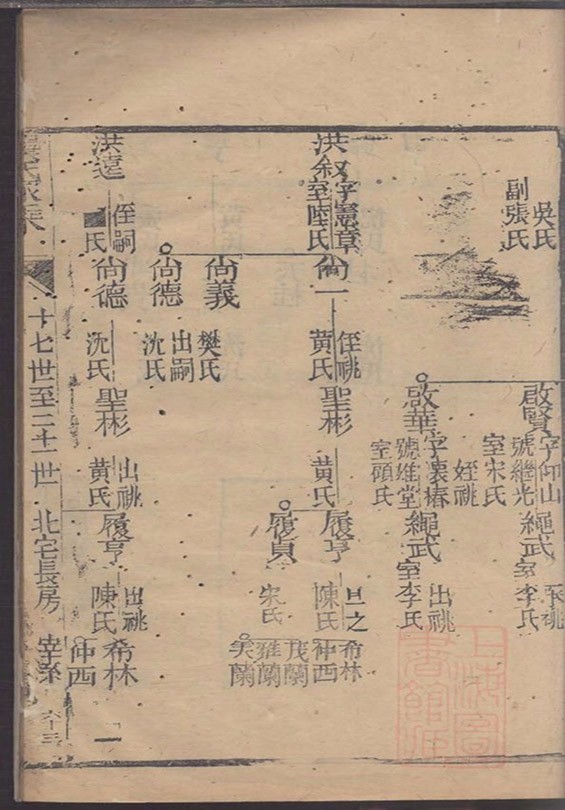 吳氏
副張氏
啟賢
字仰山
號繼光
室宋氏
繩武
室李氏
啟華
字裏椿
號維堂
室顧氏
姪祧
繩武
出祧
室李氏
洪叙
字憲章
室陸氏
尙一
姪祧
黄氏
聖彬
黄氏
履亨
旦之
陳氏
希林
仲西
茂蘭
維蘭
芙蘭
履貞
宋氏
尙義
樊氏
尙德
出嗣
沈氏
洪遠
侄嗣
氏
尙德
沈氏
聖彬
出祧
黄氏
履亨
出祧
陳氏
希林
仲西
一
十七世至二十一世
北宅長房
宰系
六十三
上海圖書館藏